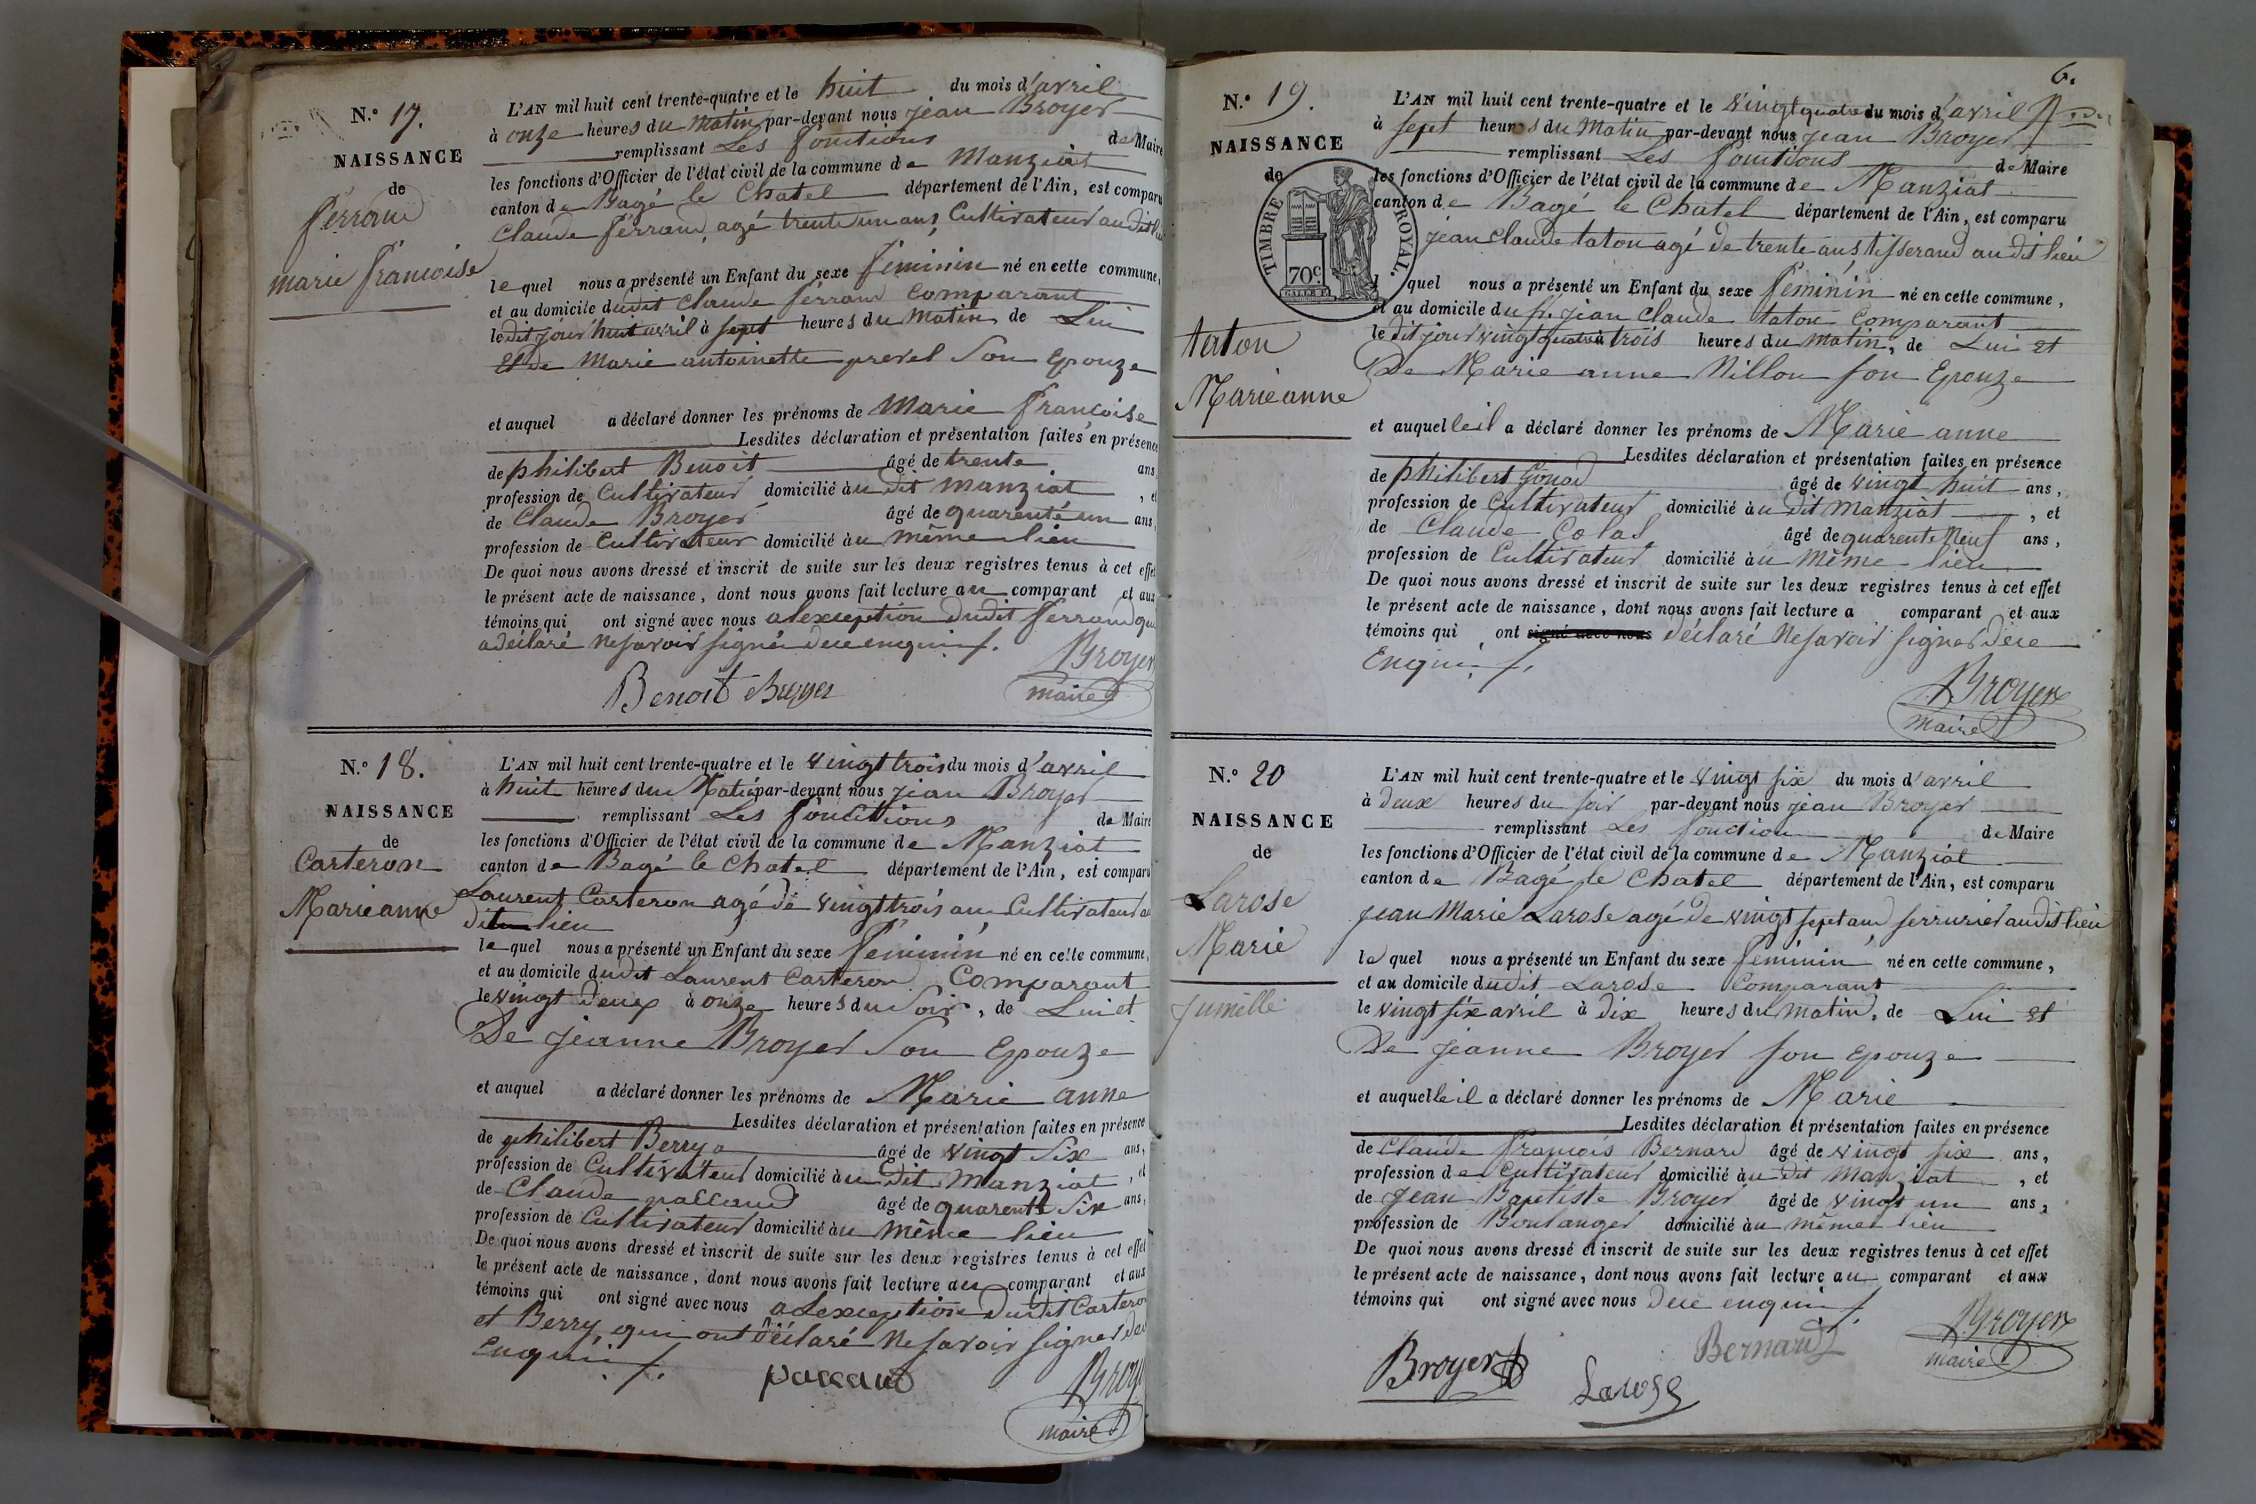 N.o 17.
NAISSANCE
de
ferrand
marie francoise
L'AN mil huit cent trente-quatre et le huit du mois d'avril
à onze heures du matin par-devant nous jean Broyer
remplissant Les fonctions de Maire
les fonctions d'Officier de l'état civil de la commune de Manziat
canton de Bagé le Chatel département de l'Ain, est comparu
Claude ferrand, agé trente un ans, Cultivateur au dit lieu
le quel nous a présenté un Enfant du sexe féminin né en cette commune,
et au domicile dudit claude ferrand comparant
le dit jour huit avril à sept heures du matin, de Lui
et de Marie antoinette prevel Son Epouze
et auquel a déclaré donner les prénoms de Marie francoise
Lesdites déclaration et présentation faites en présence
de philibert Benoit âgé de trente ans,
profession de Cultivateur domicilié àu dit manziat, et
de Claude Broyer âgé de quarente un ans,
profession de Cultivateur domicilié àu même lieu
De quoi nous avons dressé et inscrit de suite sur les deux registres tenus à cet effet
le présent acte de naissance, dont nous avons fait lecture au comparant et aux
témoins qui ont signé avec nous alexception dudit ferrand qui
a déclaré Ne savoir signé de ce enquis /.
Broyer
Benoit Broyer
maire
N.o 18.
NAISSANCE
de
Carteron
Marie anne
L'AN mil huit cent trente-quatre et le vingt trois du mois d'avril
à huit heures du Matin par-devant nous jean Broyer
remplissant Les fonctions de Maire
les fonctions d'Officier de l'état civil de la commune de Manziat
canton de Bagé le Chatel département de l'Ain, est comparu
Laurent Carteron agé de vingt trois an Cultivateur au
dit lieu
le quel nous a présenté un Enfant du sexe féminin né en cette commune,
et au domicile dudit Laurent Carteron Comparant
le vingt deux à onze heures du Soir, de Lui et
De jeanne Broyer Son Epouze
et auquel a déclaré donner les prénoms de Marie anne
Lesdites déclaration et présentation faites en présence
de philibert Berry âgé de vingt Six ans,
profession de Cultivateur domicilié àu dit manziat, et
de Claude paccaud âgé de quarente Six ans,
profession de Cultivateur domicilié àu même lieu
De quoi nous avons dressé et inscrit de suite sur les deux registres tenus à cet effet
le présent acte de naissance, dont nous avons fait lecture au comparant et aux
témoins qui ont signé avec nous alexception dudit Carteron
et Berry, qui ont déclaré Ne savoir signer de ce
Enquis /.
paccaud
Broyer
maire
6.
N.o 19.
NAISSANCE
de
TIMBRE ROYAL.
70c.
taton
Marie anne
L'AN mil huit cent trente-quatre et le vingt quatre du mois d'avril
à sept heures du Matin par-devant nous jean Broyer
remplissant Les fonctions de Maire
les fonctions d'Officier de l'état civil de la commune de Manziat
canton de Bagé le Chatel département de l'Ain, est comparu
jean claude taton agé de trente ans tisserand au dit lieu
quel nous a présenté un Enfant du sexe féminin né en cette commune,
et au domicile du sr. jean Claude taton Comparant
le dit jour vingt quatre à trois heures du matin, de Lui et
De Marie anne Nillon son Epouze
et auquel leil a déclaré donner les prénoms de Marie anne
Lesdites déclaration et présentation faites en présence
de philibert Gonod âgé de vingt huit ans,
profession de Cultivateur domicilié àu dit Manziat, et
de Claude Colas âgé de quarente Neuf ans,
profession de Cultivateur domicilié àu même lieu
De quoi nous avons dressé et inscrit de suite sur les deux registres tenus à cet effet
le présent acte de naissance, dont nous avons fait lecture a comparant et aux
témoins qui ont signé avec nous déclaré Ne savoir signer de ce
Enquis /.
Broyer
maire
N.o 20
NAISSANCE
de
Larose
Marie
jumelle
L'AN mil huit cent trente-quatre et le vingt six du mois d'avril
à deux heures du soir par-devant nous jean Broyer
remplissant Les fonction de Maire
les fonctions d'Officier de l'état civil de la commune de Manziat
canton de Bagé le Chatel département de l'Ain, est comparu
jean Marie Larose agé de vingt sept ans serrurier au dit lieu
le quel nous a présenté un Enfant du sexe féminin né en cette commune,
et au domicile dudit Larose Comparant
le vingt six avril à dix heures du matin, de Lui et
De jeanne Broyer son epouze
et auquel leil a déclaré donner les prénoms de Marie
Lesdites déclaration et présentation faites en présence
de Claude francois Bernard âgé de vingt six ans,
profession de Cultivateur domicilié àu dit Manziat, et
de jean Baptiste Broyer âgé de vingt un ans,
profession de Boulanger domicilié àu même lieu
De quoi nous avons dressé et inscrit de suite sur les deux registres tenus à cet effet
le présent acte de naissance, dont nous avons fait lecture au comparant et aux
témoins qui ont signé avec nous de ce enquis /.
Broyer
maire
Bernard
Broyer
Larose